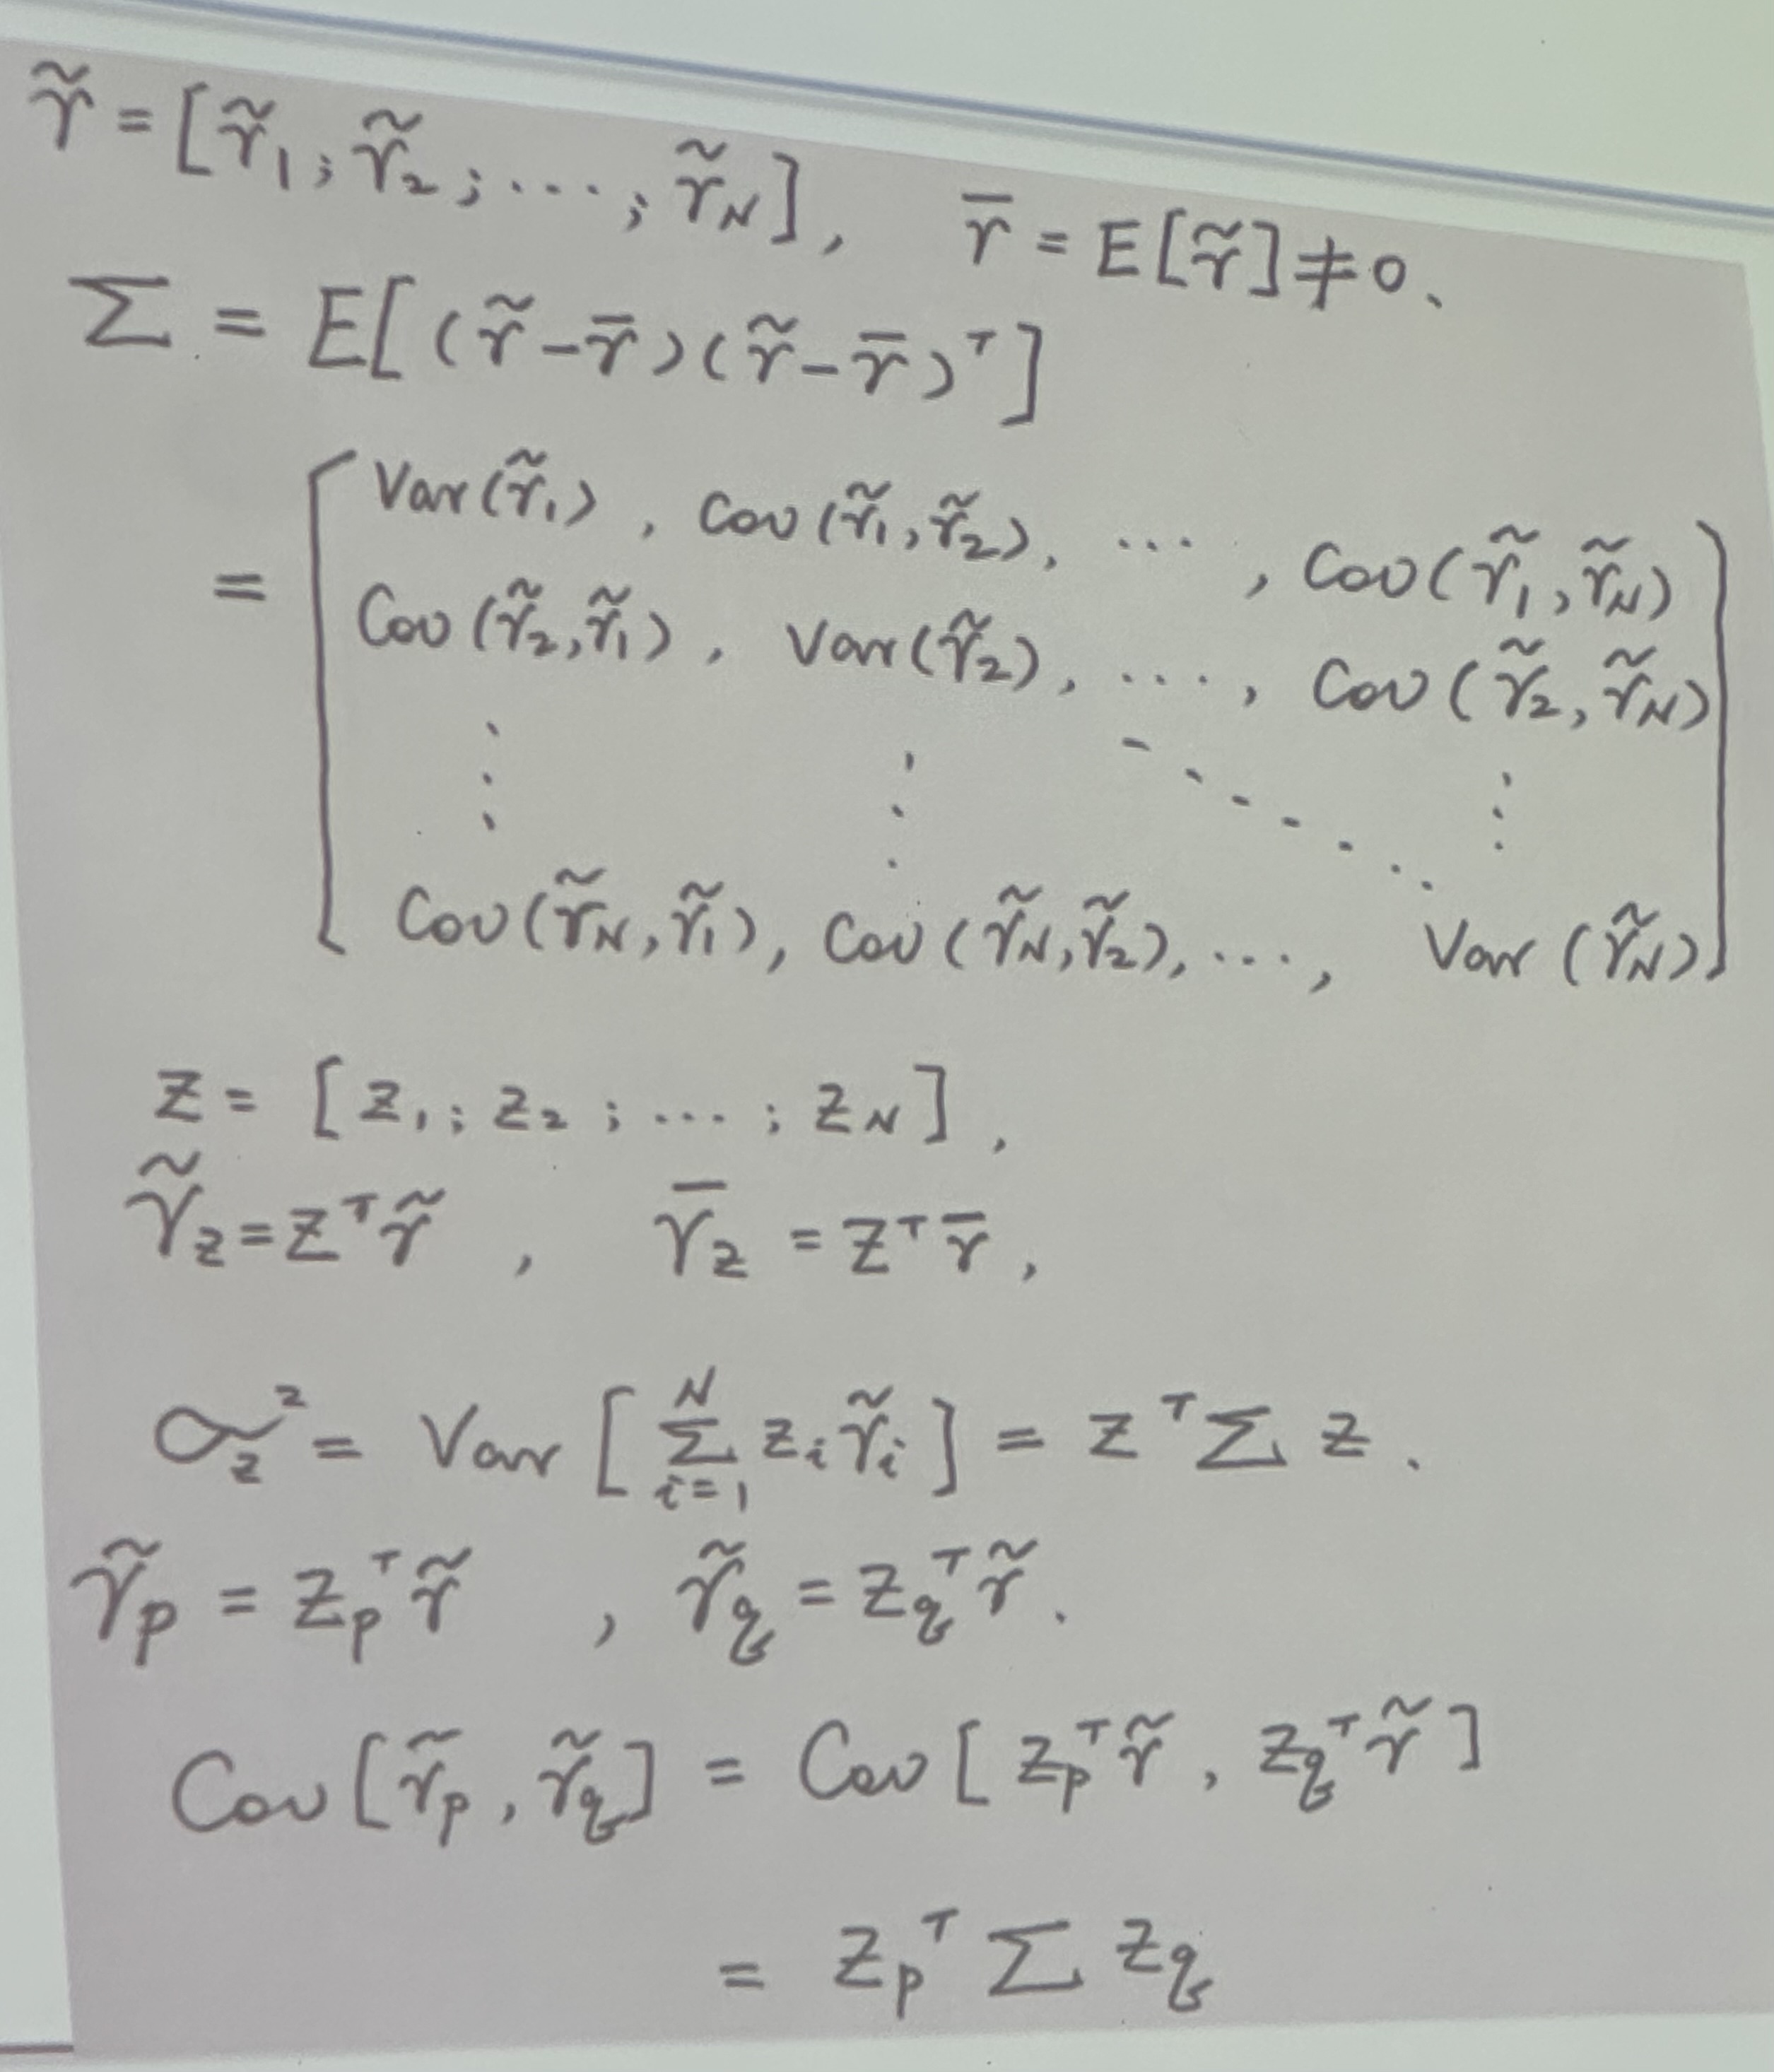 r̃ = [r̃₁; r̃₂; ⋯; r̃_N], r̄ = E[r̃] ≠ 0.
Σ = E[(r̃ − r̄)(r̃ − r̄)ᵀ]
= [ Var(r̃₁), Cov(r̃₁, r̃₂), ⋯, Cov(r̃₁, r̃_N)
Cov(r̃₂, r̃₁), Var(r̃₂), ⋯, Cov(r̃₂, r̃_N)
⋮ ⋮ ⋱ ⋮
Cov(r̃_N, r̃₁), Cov(r̃_N, r̃₂), ⋯, Var(r̃_N) ]
z = [z₁; z₂; ⋯; z_N],
r̃_z = zᵀr̃, r̄_z = zᵀr̄,
σ_z² = Var[∑_{i=1}^{N} z_i r̃_i] = zᵀ Σ z.
r̃_p = z_pᵀ r̃, r̃_q = z_qᵀ r̃.
Cov[r̃_p, r̃_q] = Cov[z_pᵀ r̃, z_qᵀ r̃]
= z_pᵀ Σ z_q